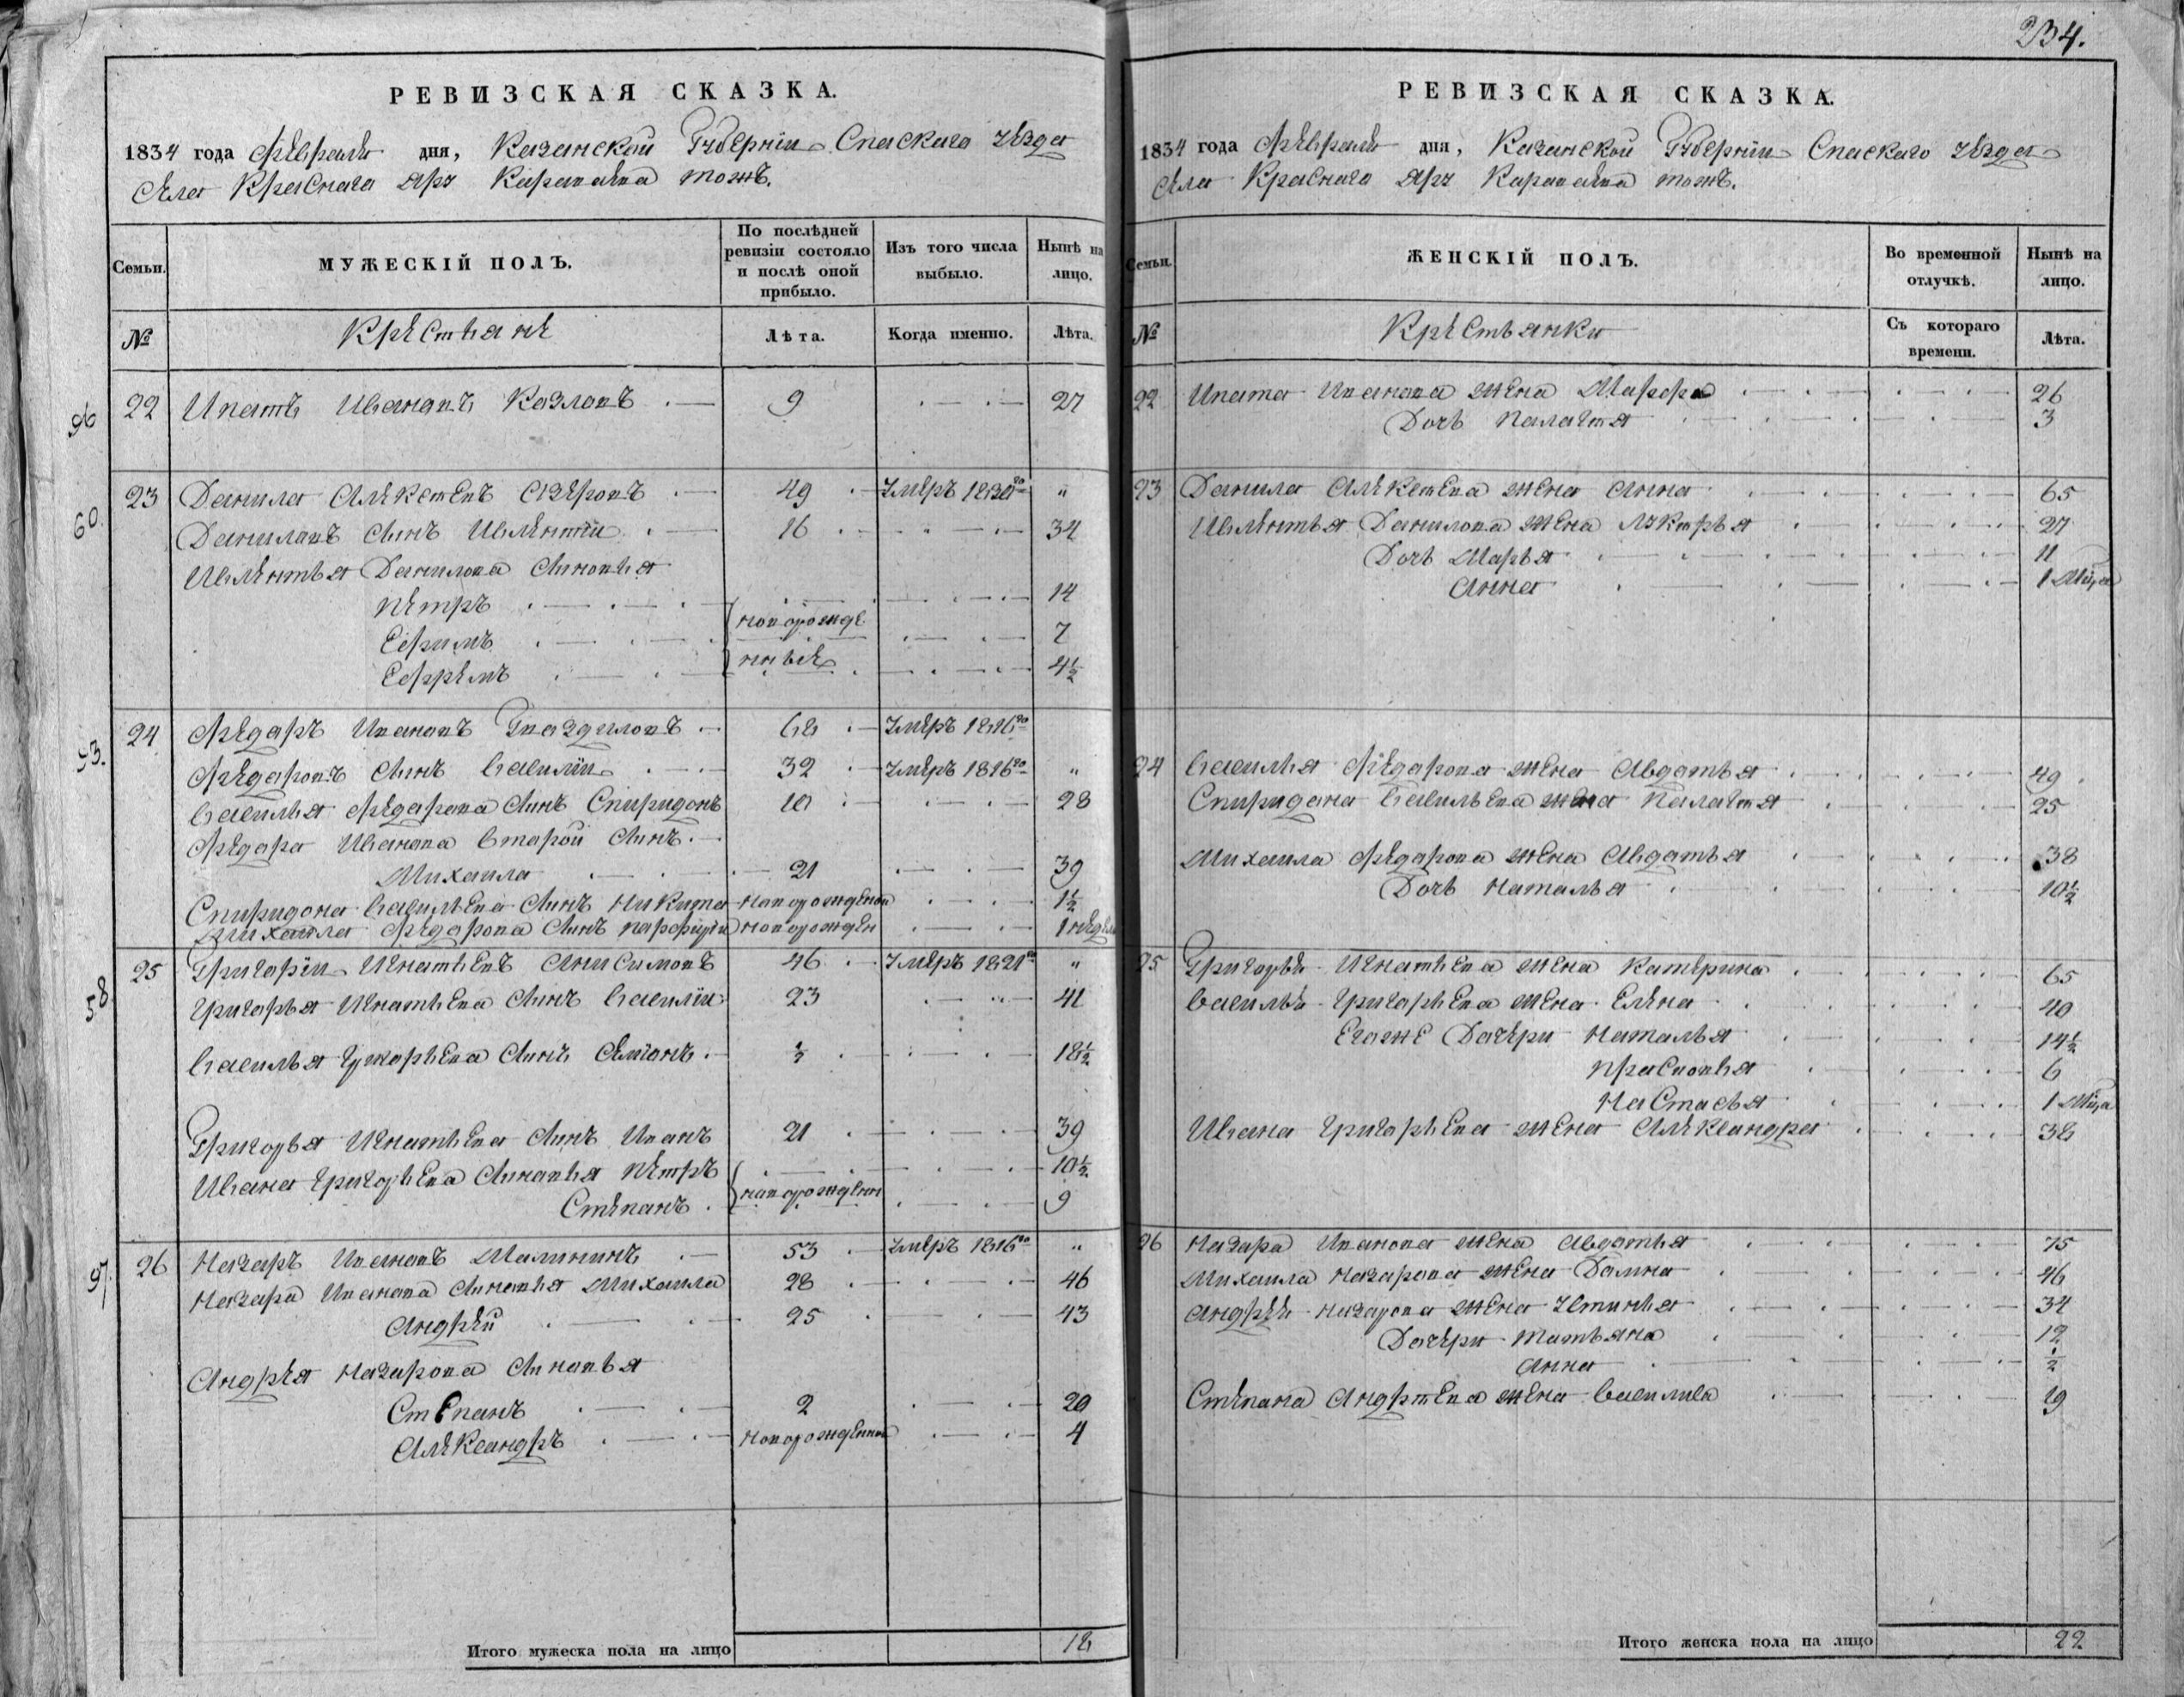 234.
РЕВИЗСКАЯ СКАЗКА.
1834 года Февраля дня, Казанской Губернiи Спаскаго уѣзда
Села Краснаго Яру Караваева тожъ.
Семьи.
МУЖЕСКIЙ ПОЛЪ.
По послѣдней ревизiи состояло и послѣ оной прибыло.
Изъ того числа выбыло.
Нынѣ на лицо.
№
Крѣстьянѣ
Лѣта.
Когда именно.
Лѣта.
96 22 Ипатъ Ивановъ Казловъ 9 27
60. 23 Данила Алѣксѣевъ 49 Умѣръ 1830го "
Даниловъ Сынъ 16 34
Данилова Сыновья
Пѣтръ 14
Ефимъ новорожде 7
Ефрѣмъ нныѣ 4½
93. 24 Фѣдаръ Ивановъ Гваздиловъ 68 Умѣръ 1816го
Фѣдаровъ Сынъ Василiи 32 Умѣръ 1816го "
Василья Фѣдарова Сынъ Спиридонъ 10 28
Фѣдара Иванова Второй Сынъ
Михаила 21 39
Спиридона Васильева Сынъ Никита новорожденои 1½
Михаила Фѣдарова Сынъ новорожден 1 недѣли
58 25 Григорiи Игнатьевъ Анисимовъ 46 Умѣръ 1821го "
Григорья Игнатьева Сынъ Василiи 23 41
Василья Григорьева Сынъ Сѣмiонъ ½ 18½
Григорья Игнатьева Сынъ Иванъ 21 39
Ивана Григорьева Сыновья Пѣтръ 10½
Стѣпанъ новорожденн 9
97. 26 Назаръ Ивановъ Малининъ 53 Умѣръ 1816го "
Назара Иванова Сыновья Михаила 28 46
Андрѣй 25 43
Андрѣя Назарова Сыновья
Степанъ 2 20
Алѣксандръ новорожденнои 4
Итого мужеска пола на лицо 18
РЕВИЗСКАЯ СКАЗКА.
1834 года Февраля дня, Казанской Губернiи Спаскаго уѣзда
Села Краснаго Яру Караваева тожъ.
Семьи.
ЖЕНСКIЙ ПОЛЪ.
Во временной отлучкѣ.
Нынѣ на лицо.
№
Крѣстьянки
Съ котораго времени.
Лѣта.
22 Ипата Иванова жена Марфа 26
Дочь Палагѣя 3
23 Данила Алѣксѣева жена Анна 65
Данилова жена Лукерья 27
Дочь Марья 11
Анна 1 мѣца
24 Василья Фѣдарова жена Авдотья 49
Спиридона Васильева жена Палагѣя 25
Михаила Фѣдарова жена Авдотья 38
Дочь Наталья 10½
25 Григорья Игнатьева жена Катѣрина 65
Василья Григорьева жена Елѣна 40
Егоже Дочѣри Наталья 14½
Прасковья 6
Настасья 1 мѣца
Ивана Григорьева жена Алѣксандра 38
26 Назара Иванова жена Авдотья 75
Михаила Назарова жена Домна 46
Андрѣя Назарова жена Устинья 34
Дочѣри Татьяна 12
Анна ½
Стѣпана Андрѣева жена Василиса 19
Итого женска пола на лицо 22